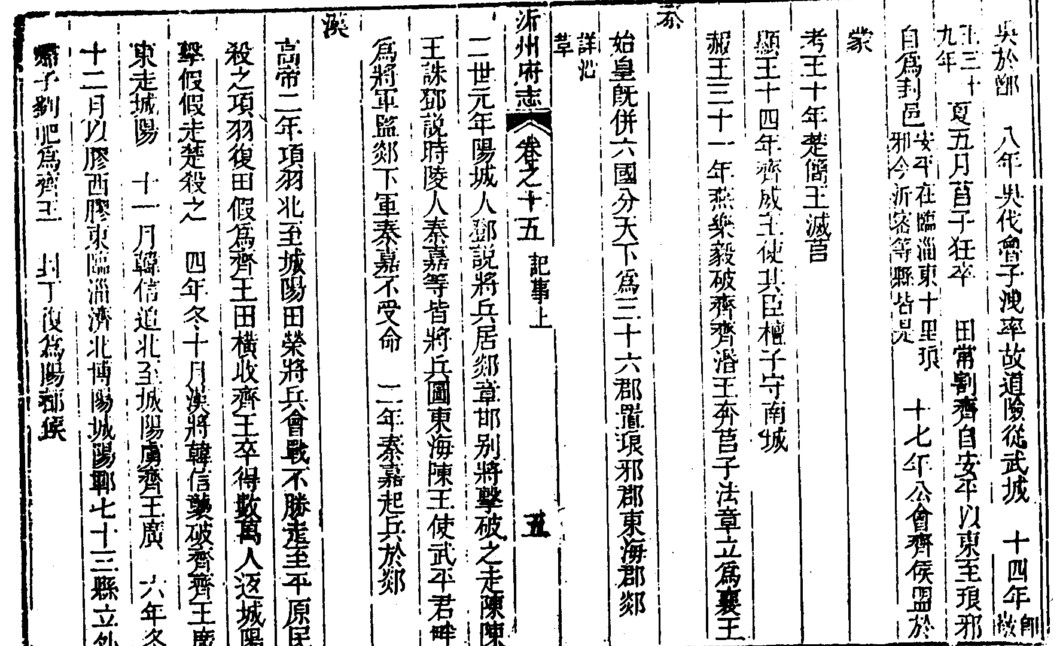 吳於鄫　八年吳伐魯子洩率故道險從武城　十四年
敬王三十九年　夏五月莒子狂卒　田常割齊自安平以東至琅邪
自爲封邑安平在臨淄東十里琅邪今沂密等縣皆是　十七年公會齊侯盟於
蒙
考王十年楚簡王滅莒
顯王十四年齊威王使其臣檀子守南城
赧王三十一年燕樂毅破齊齊湣王奔莒子法章立爲襄王
秦
始皇旣併六國分天下爲三十六郡置琅邪郡東海郡郯
詳沿革
沂州府志　卷之十五　記事上　五
二世元年陽城人鄧說將兵居郯章邯別將擊破之走陳陳
王誅鄧說時陵人秦嘉等皆將兵圍東海陳王使武平君畔
爲將軍監郯下軍秦嘉不受命　二年秦嘉起兵於郯
漢
高帝二年項羽北至城陽田榮將兵會戰不勝走至平原民
殺之項羽復田假爲齊王田橫收齊王卒得數萬人返城陽
擊假假走楚殺之　四年冬十月漢將韓信襲破齊齊王廣
東走城陽　十一月韓信追北至城陽虜齊王廣　六年冬
十二月以膠西膠東臨淄濟北博陽城陽郡七十三縣立外
婦子劉肥爲齊王　封丁復爲陽都侯